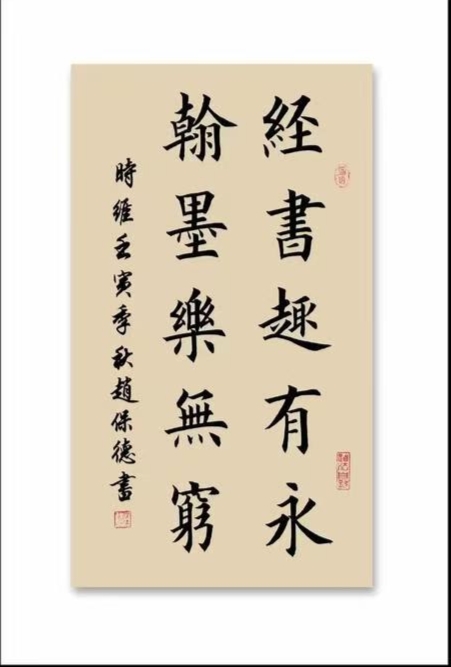 経書趣有永
翰墨樂無窮
時維壬寅季秋趙保德書